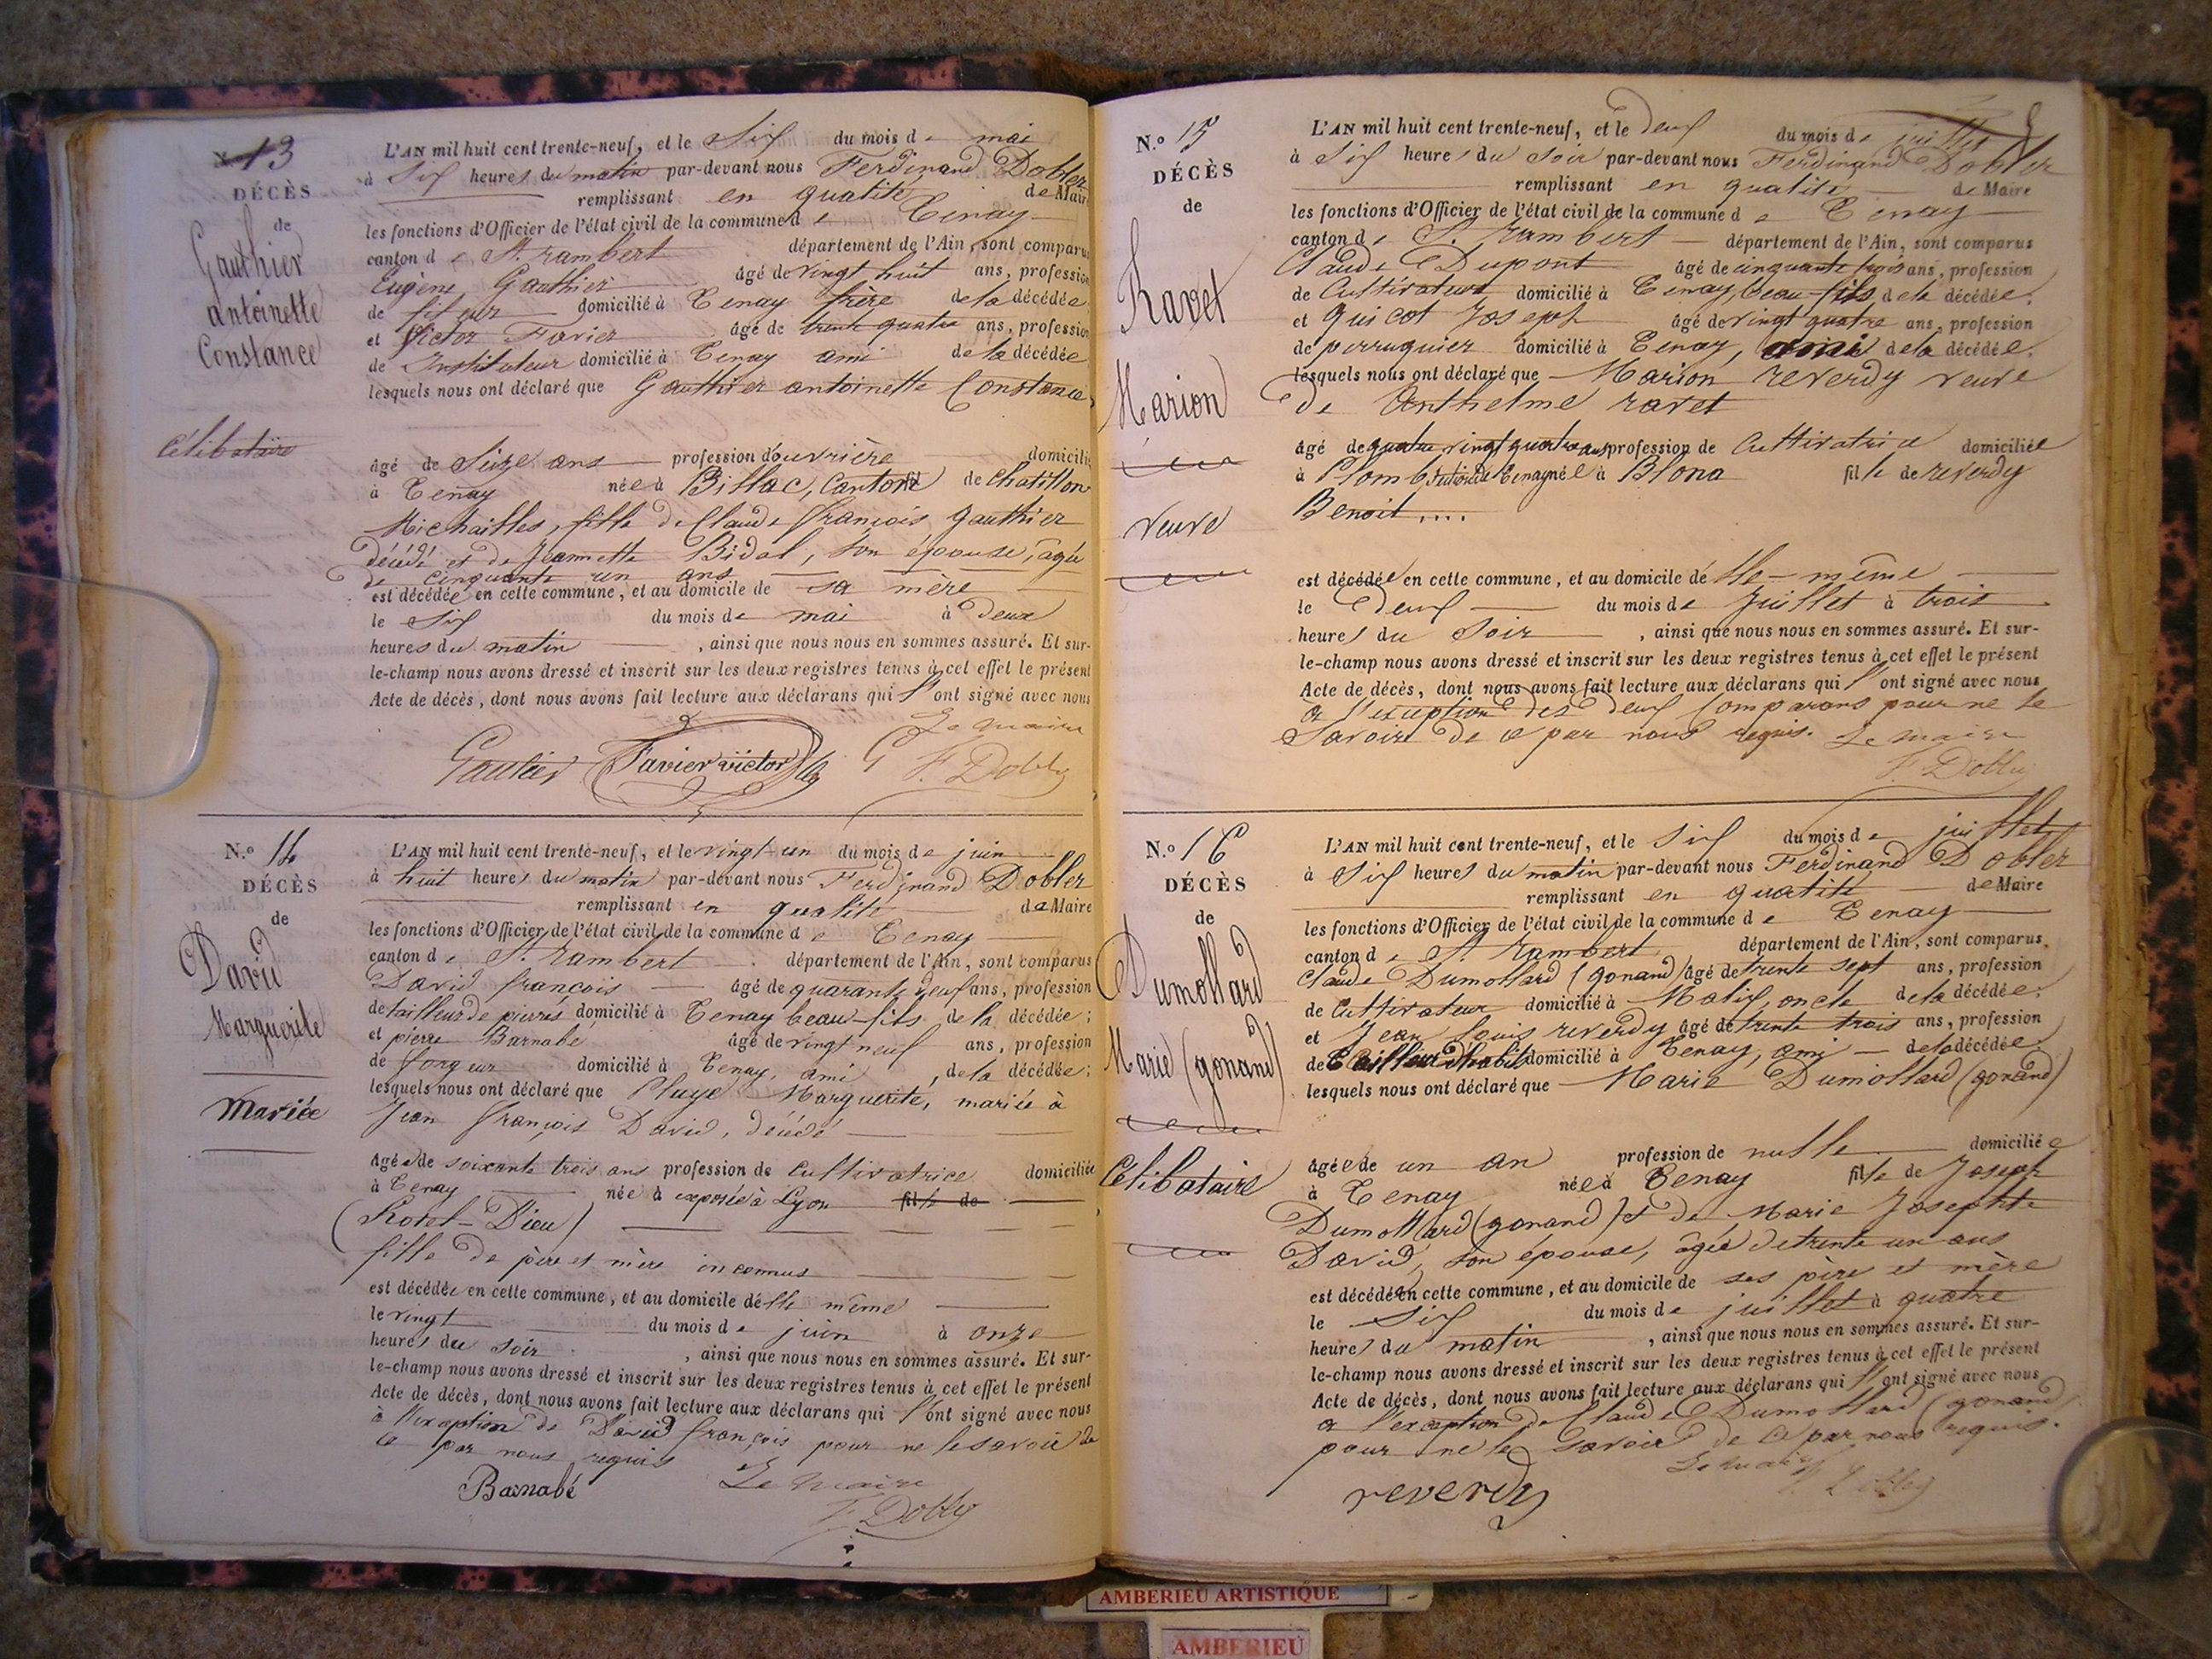 N.o 13
DÉCÈS
de
Gauthier
antoinette
Constance
Célibataire
L'AN mil huit cent trente-neuf, et le Six du mois de mai
à Six heures du matin par-devant nous Ferdinand Dobler
remplissant en qualité de Maire
les fonctions d'Officier de l'état civil de la commune de Tenay
canton de St. rambert département de l'Ain, sont comparus
Eugène Gauthier âgé de vingt huit ans, profession
de domicilié à Tenay frère de la décédée
et Victor Favier âgé de trente quatre ans, profession
de Instituteur domicilié à Tenay ami de la décédée
lesquels nous ont déclaré que Gauthier antoinette Constance
âgé de Seize ans profession d'ouvrière domicilié
à Tenay née à Billac, Canton de Chatillon
Michailles, fille de Claude françois gauthier
décédé et de Jeannette Bidal, son épouse, âgée
de cinquante un ans
est décédée en cette commune, et au domicile de sa mère
le Six du mois de mai à deux
heures du matin , ainsi que nous nous en sommes assuré. Et sur-
le-champ nous avons dressé et inscrit sur les deux registres tenus à cet effet le présent
Acte de décès, dont nous avons fait lecture aux déclarans qui l'ont signé avec nous
Le maire
Gautier Favier victor F. Dobler
N.o 14
DÉCÈS
de
David
Marguerite
Mariée
L'AN mil huit cent trente-neuf, et le vingt-un du mois de juin
à huit heures du matin par-devant nous Ferdinand Dobler
remplissant en qualité de Maire
les fonctions d'Officier de l'état civil de la commune de Tenay
canton de St. rambert département de l'Ain, sont comparus
David françois âgé de quarante deux ans, profession
de tailleur de pierres domicilié à Tenay beau-fils de la décédée;
et pierre Barnabé âgé de vingt neuf ans, profession
de forgeur domicilié à Tenay, ami , de la décédée;
lesquels nous ont déclaré que Pluye Marguerite, mariée à
Jean françois David, décédé
Agée de soixante trois ans profession de Cultivatrice domiciliée
à Tenay née à exposée à Lyon fille de
(Hotel-Dieu)
fille de père et mère inconnus
est décédée en cette commune, et au domicile d'elle même
le vingt du mois de juin à onze
heures du soir , ainsi que nous nous en sommes assuré. Et sur-
le-champ nous avons dressé et inscrit sur les deux registres tenus à cet effet le présent
Acte de décès, dont nous avons fait lecture aux déclarans qui l'ont signé avec nous
à l'exception de David françois pour ne le savoir de
ce par nous requis
Barnabé Le maire
F. Dobler
N.o 15
DÉCÈS
de
Ravet
Marion
veuve
L'AN mil huit cent trente-neuf, et le deux du mois de juillet
à Six heures du soir par-devant nous Ferdinand Dobler
remplissant en qualité de Maire
les fonctions d'Officier de l'état civil de la commune de Tenay
canton de St. rambert département de l'Ain, sont comparus
Claude Dupont âgé de cinquante trois ans, profession
de Cultivateur domicilié à Tenay, beau-fils de la décédée;
et Guicot Joseph âgé de vingt quatre ans, profession
de perruquier domicilié à Tenay, ami de la décédée;
lesquels nous ont déclaré que Marion reverdy veuve
de Anthelme ravet
âgé de quatre vingt quatre ans profession de Cultivatrice domiciliée
à née à Blona fille de reverdy
Benoit....
est décédée en cette commune, et au domicile d'elle-même
le deux du mois de juillet à trois
heures du soir , ainsi que nous nous en sommes assuré. Et sur-
le-champ nous avons dressé et inscrit sur les deux registres tenus à cet effet le présent
Acte de décès, dont nous avons fait lecture aux déclarans qui l'ont signé avec nous
à l'exception des deux Comparans pour ne le
Savoir de ce par nous requis. Le maire
F. Dobler
N.o 16
DÉCÈS
de
Dumollard
Marie (gonand)
Célibataire
L'AN mil huit cent trente-neuf, et le Six du mois de juillet
à Six heures du matin par-devant nous Ferdinand Dobler
remplissant en qualité de Maire
les fonctions d'Officier de l'état civil de la commune de Tenay
canton de St. rambert département de l'Ain, sont comparus
Claude Dumollard (gonand) âgé de trente sept ans, profession
de Cultivateur domicilié à Malix, oncle de la décédée;
et Jean Louis reverdy âgé de trente trois ans, profession
de tailleur d'habits domicilié à Tenay, ami de la décédée
lesquels nous ont déclaré que Marie Dumollard (gonand)
âgée de un an profession de nulle domiciliée
à Tenay née à Tenay fille de Joseph
Dumollard (gonand) et de Marie Josephte
David, son épouse, âgée de trente un ans
est décédée en cette commune, et au domicile de ses père et mère
le Six du mois de juillet à quatre
heures du matin , ainsi que nous nous en sommes assuré. Et sur-
le-champ nous avons dressé et inscrit sur les deux registres tenus à cet effet le présent
Acte de décès, dont nous avons fait lecture aux déclarans qui l'ont signé avec nous
a l'exception de Claude Dumollard (gonand)
pour ne le savoir de ce par nous requis.
Le maire F. Dobler
reverdy
AMBERIEU ARTISTIQUE
AMBERIEU